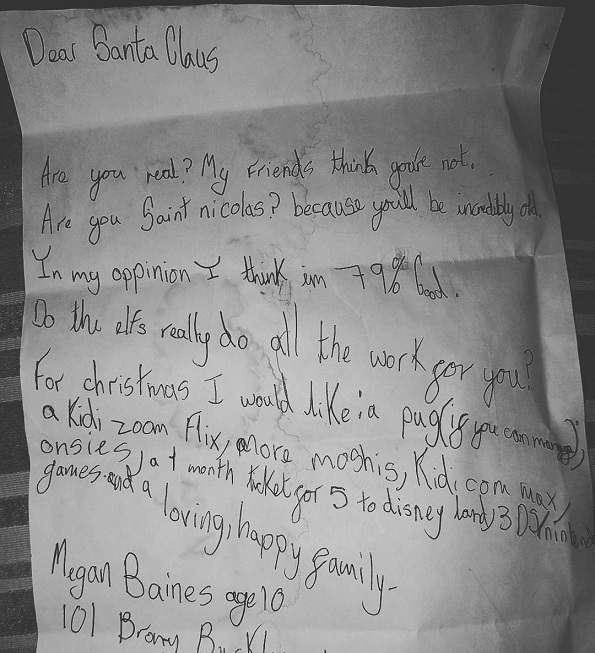 Dear Santa Claus
Are you real? My Friends think you're not.
Are you Saint nicolas? because you'll be incredibly old.
In my oppinion I think im 79% Good.
Do the elfs really do all the work for you?
For christmas I would like: a pug (if you can manage),
a Kidi zoom Flix, more moshis, Kidi com max,
onsies, a 1 month ticket for 5 to disney land, 3DS/nintendo
games and a loving, happy family-
Megan Baines age 10
101